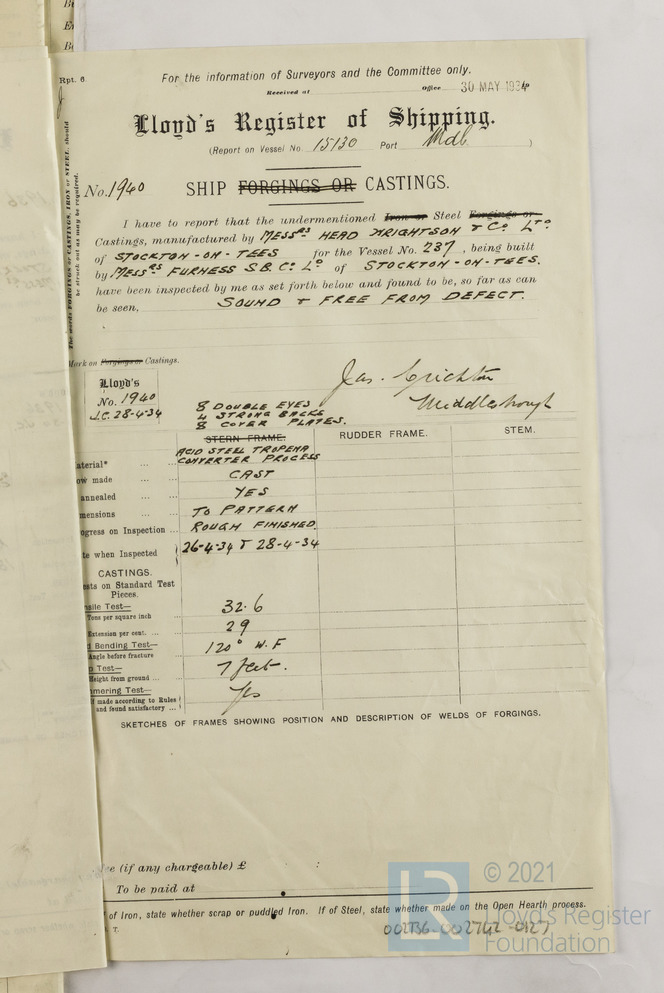 Rpt. 6.
For the information of Surveyors and the Committee only.
Received at Office 30 MAY 1934
Lloyd's Register of Shipping.
(Report on Vessel No. 15130 Port Mdb )
The words FORGINGS or CASTINGS, IRON or STEEL, should
be struck out as may be required.
No. 1940 SHIP FORGINGS OR CASTINGS.
I have to report that the undermentioned Iron or Steel Forgings or
Castings, manufactured by MESSRS HEAD WRIGHTSON & CO LTD
of STOCKTON-ON-TEES for the Vessel No. 237, being built
by MESSRS FURNESS S.B. CO LD of STOCKTON-ON-TEES.
have been inspected by me as set forth below and found to be, so far as can
be seen, SOUND & FREE FROM DEFECT.
Mark on Forgings or Castings.
Lloyd's
No. 1940
J.C. 28-4-34
Jas. Crichton
Middlesbrough
8 DOUBLE EYES
4 STRONG BACKS
8 COVER PLATES.
STERN FRAME. RUDDER FRAME. STEM.
aterial* ... ... ACID STEEL TROPENA
CONVERTER PROCESS
ow made ... ... CAST
annealed ... ... YES
mensions ... ... TO PATTERN
ogress on Inspection ... ROUGH FINISHED
te when Inspected 26-4-34 & 28-4-34
CASTINGS.
ests on Standard Test
Pieces.
nsile Test—
Tons per square inch 32.6
Extension per cent. ... ... 29
d Bending Test—
Angle before fracture 120° W.F
p Test—
Height from ground ... ... 7 feet.
mmering Test—
f made according to Rules
and found satisfactory ... Yes
SKETCHES OF FRAMES SHOWING POSITION AND DESCRIPTION OF WELDS OF FORGINGS.
ee (if any chargeable) £ :
To be paid at
of Iron, state whether scrap or puddled Iron. If of Steel, state whether made on the Open Hearth process.
002736-002742-0127
LR
© 2021
Lloyd's Register
Foundation